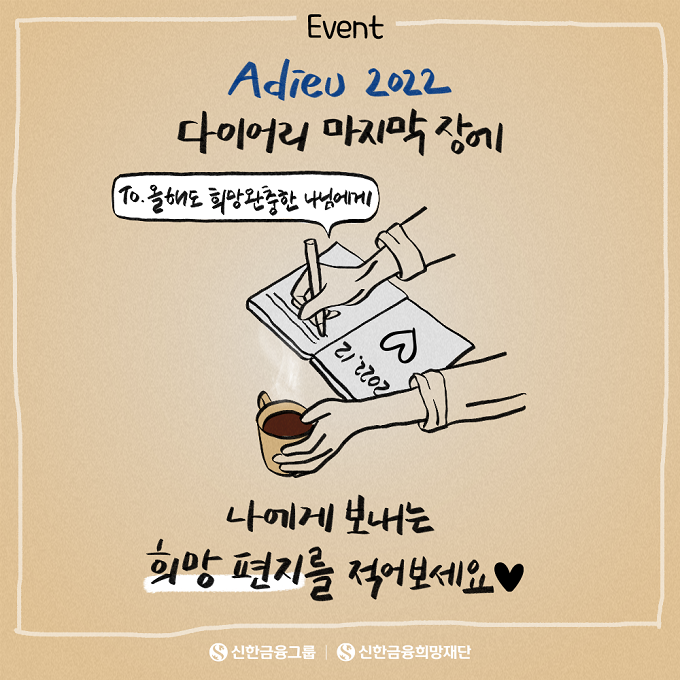 Event
Adieu 2022
다이어리 마지막 장에
To. 올해도 희망완충한 나님에게
2022.12
나에게 보내는
희망 편지를 적어보세요♥
신한금융그룹 | 신한금융희망재단